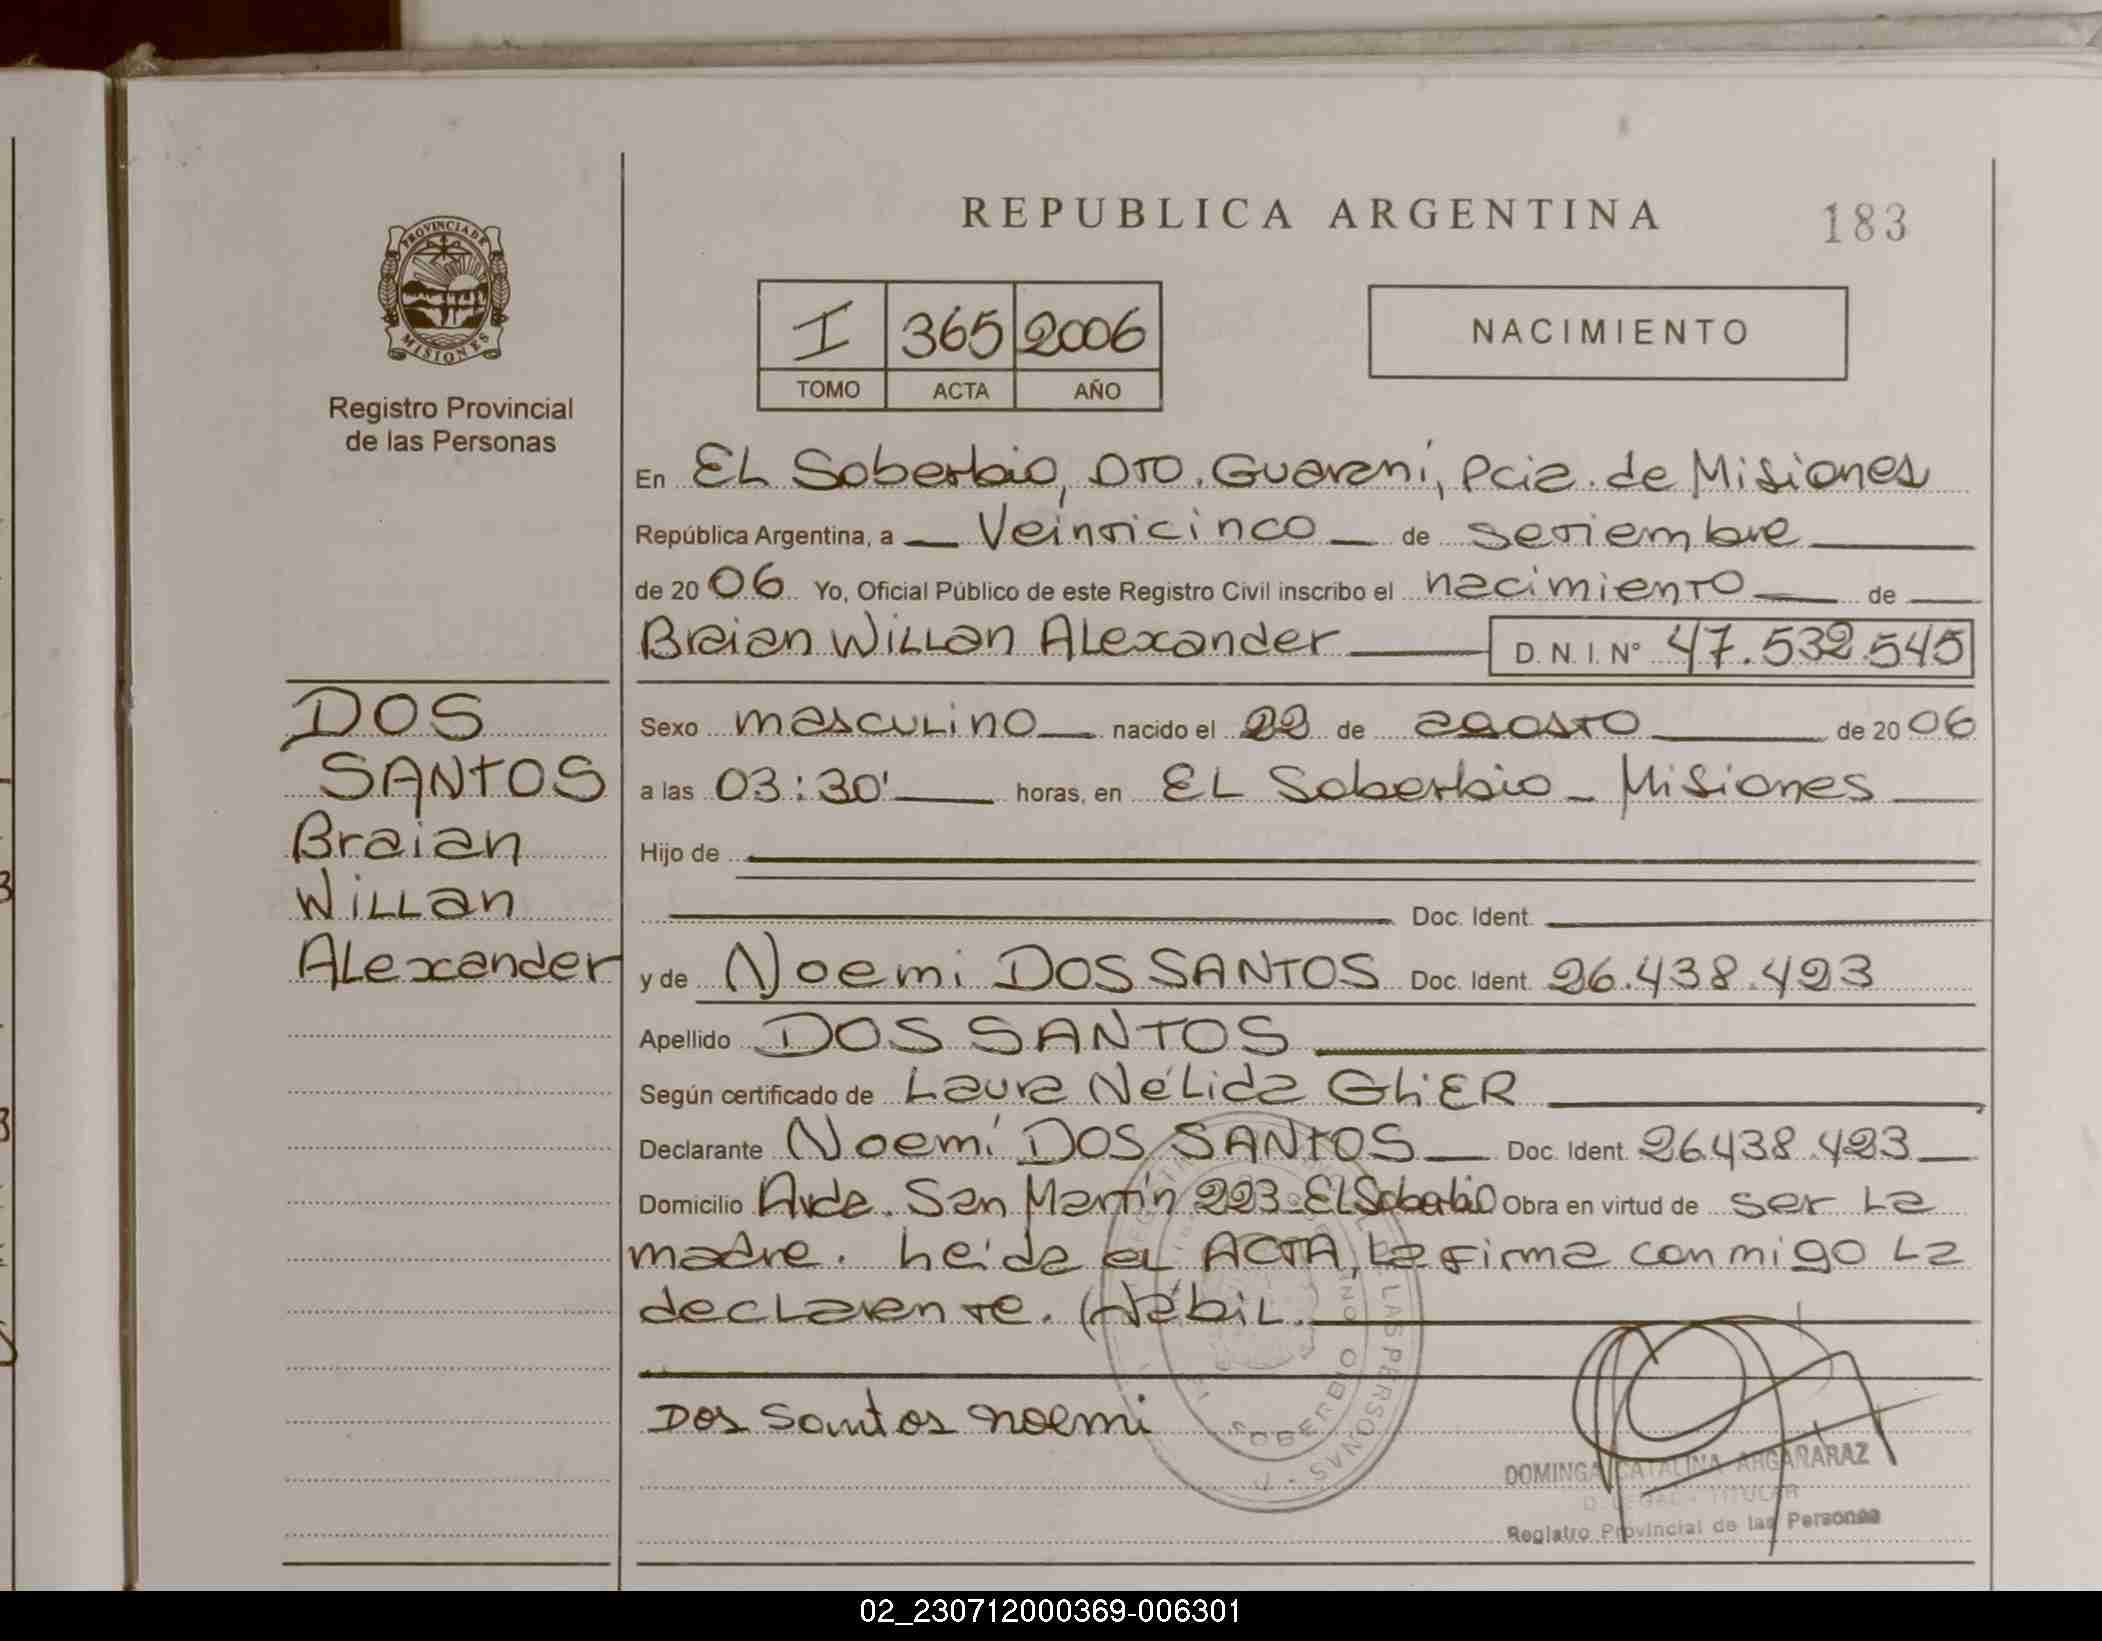 REPUBLICA ARGENTINA
183
PROVINCIA DE
MISIONES
Registro Provincial
de las Personas
I 365 2006
TOMO ACTA AÑO
NACIMIENTO
En EL Soberbio, DTO. Guaraní, Pcia. de Misiones
República Argentina, a Veinticinco de setiembre
de 2006 Yo, Oficial Público de este Registro Civil inscribo el nacimiento de
Braian WiLLan ALexander D. N. I. N° 47.532.545
DOS
SANTOS
Braian
WiLLan
ALexander
Sexo mascuLino nacido el 22 de agosto de 2006
a las 03:30' horas, en EL Soberbio - Misiones
Hijo de
Doc. Ident.
y de Noemi DOS SANTOS Doc. Ident. 26.438.423
Apellido DOS SANTOS
Según certificado de Laura NéLida GLiER
Declarante Noemí DOS SANTOS Doc. Ident. 26.438.423
Domicilio Avda. San Martín 223 - EL Soberbio Obra en virtud de ser La
madre. Leída eL ACTA, La firma conmigo La
decLarante. Hábil.
Dos Santos noemi
SOBERBIO
LAS PERSONAS
DOMINGA CATALINA ARGAÑARAZ
DELEGADA TITULAR
Registro Provincial de las Personas
02_230712000369-006301